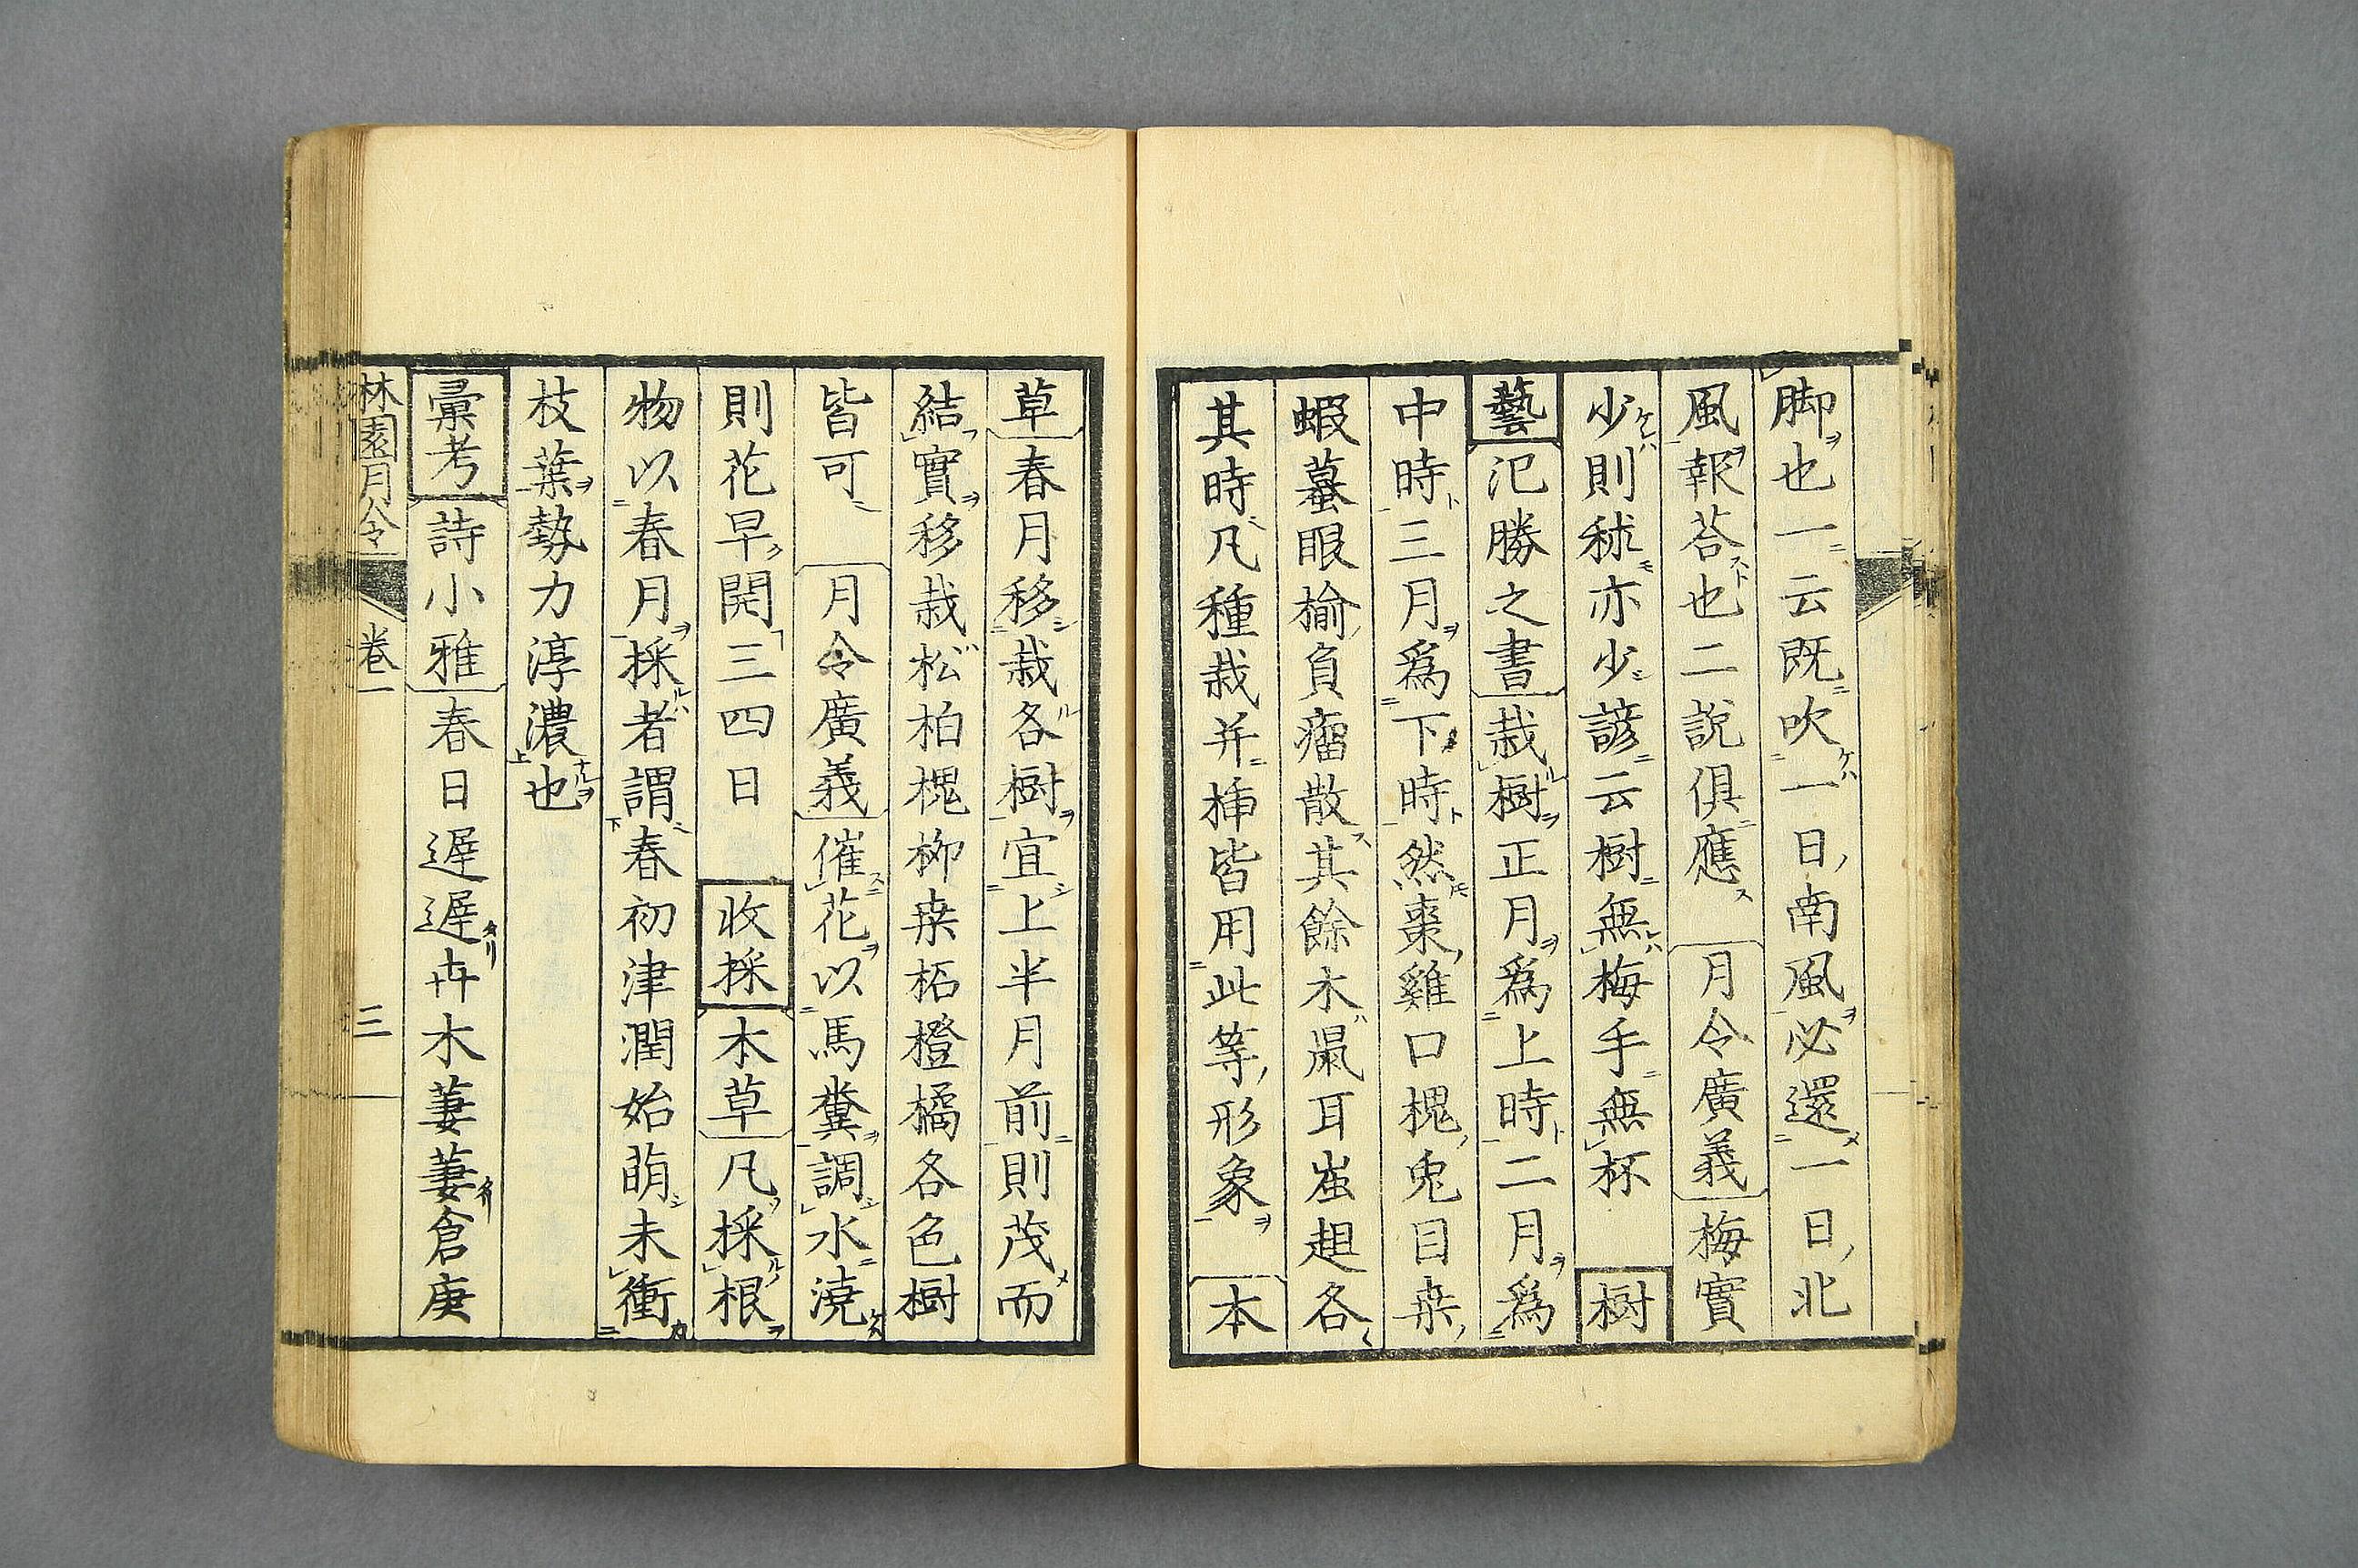 脚也一云既吹一日南風必還一日北
風報荅也二説俱應　月令廣義梅實
少則秫亦少諺云樹無梅手無杯　樹
藝氾勝之書栽樹正月爲上時二月爲
中時三月爲下時然棗雞口槐兎目桒
蝦蟇眼榆負瘤散其餘木鼠耳䖟翅各
其時凡種栽并揷皆用此等形象　本
草春月移栽各樹宜上半月前則茂而
結實移栽松柏槐柳桒柘橙橘各色樹
皆可　月令廣義催花以馬糞調水澆
則花早開三四日　收採本草凡採根
物以春月採者謂春初津潤始萌未衝
枝葉勢力淳濃也
彙考詩小雅春日遲遲卉木萋萋倉庚
林園月令　卷一　三